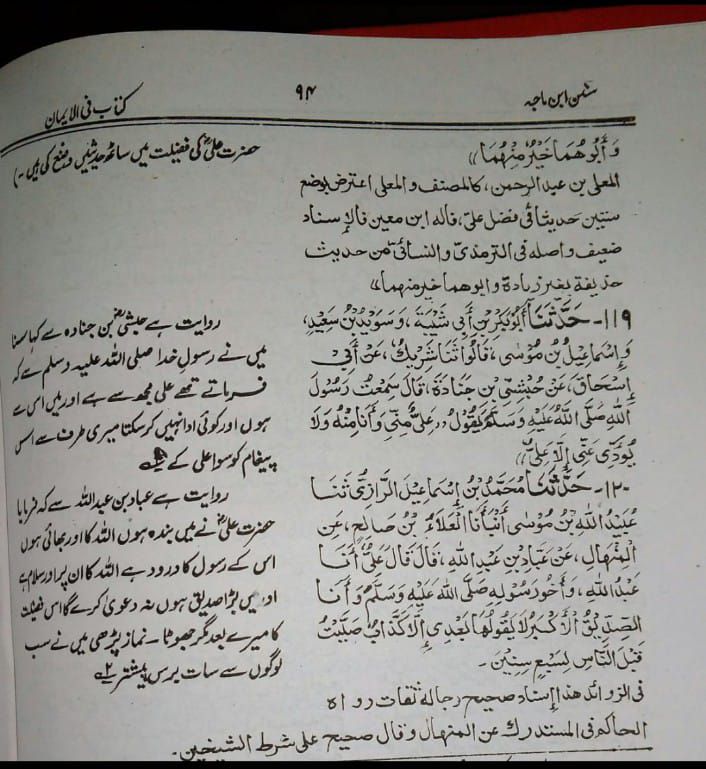 سنن ابن ماجہ
۹۴
کتاب فی الایمان
وَأَبُوهُمَا خَيْرٌ مِنْهُمَا))
المعلى بن عبد الرحمن، كالمصنف والمعلى اعترض بوضع
ستين حديثا في فضل علي، قاله ابن معين فالإسناد
ضعيف واصله في الترمذي والنسائي من حديث
حذيفة بغير زيادة وابوهما خير منهما))
۱۱۹- حَدَّثَنَا أَبُو بَكْرِ بْنُ أَبِي شَيْبَةَ، وَسُوَيْدُ بْنُ سَعِيدٍ،
وَإِسْمَاعِيلُ بْنُ مُوسَى، قَالُوا ثَنَا شَرِيكٌ، عَنْ أَبِي
إِسْحَاقَ، عَنْ حُبْشِيِّ بْنِ جُنَادَةَ، قَالَ سَمِعْتُ رَسُولَ
اللهِ صَلَّى اللهُ عَلَيْهِ وَسَلَّمَ يَقُولُ ((عَلِيٌّ مِنِّي وَأَنَا مِنْهُ وَلَا
يُؤَدِّي عَنِّي إِلَّا عَلِيٌّ))
۱۲۰- حَدَّثَنَا مُحَمَّدُ بْنُ إِسْمَاعِيلَ الرَّازِيُّ ثَنَا
عُبَيْدُ اللهِ بْنُ مُوسَى أَنْبَأَنَا الْعَلَاءُ بْنُ صَالِحٍ، عَنِ
الْمِنْهَالِ، عَنْ عَبَّادِ بْنِ عَبْدِ اللهِ، قَالَ قَالَ عَلِيٌّ أَنَا
عَبْدُ اللهِ، وَأَخُو رَسُولِهِ صَلَّى اللهُ عَلَيْهِ وَسَلَّمَ وَأَنَا
الصِّدِّيقُ الْأَكْبَرُ لَا يَقُولُهَا بَعْدِي إِلَّا كَذَّابٌ صَلَّيْتُ
قَبْلَ النَّاسِ لِسَبْعِ سِنِينَ-
في الزوائد هذا إسناد صحيح رجاله ثقات رواه
الحاكم في المستدرك عن المنهال وقال صحيح على شرط الشيخين-
حضرت علیؓ کی فضیلت میں ساٹھ حدیثیں وضع کی ہیں-)
روایت ہے حبشیؓ بن جنادہ سے کہا سنا
میں نے رسول خدا صلی اللہ علیہ وسلم سے کہ
فرماتے تھے علی مجھ سے ہے اور میں اس سے
ہوں اور کوئی ادا نہیں کر سکتا میری طرف سے اس
پیغام کو سوا علی کے
روایت ہے عباد بن عبد اللہ سے کہ فرمایا
حضرت علیؓ نے میں بندہ ہوں اللہ کا اور بھائی ہوں
اس کے رسول کا درود ہے اللہ کا ان پر اور سلام ہے
اور میں بڑا صدیق ہوں نہ دعویٰ کرے گا اس فضیلت
کا میرے بعد مگر جھوٹا- نماز پڑھی میں نے سب
لوگوں سے سات برس پیشتر